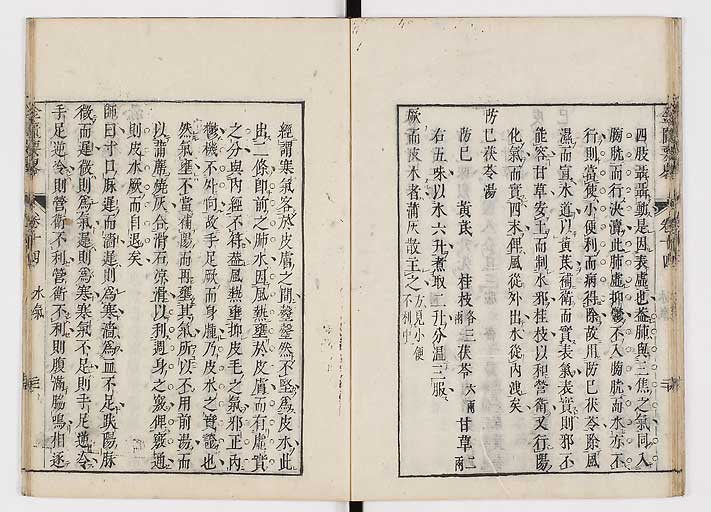 四肢聶聶動是因表虛也蓋肺與三焦之氣同入
膀胱而行決瀆此肺虛抑鬱不入膀胱而水亦不
行則當使小便利而病得除故用防已茯苓除風
濕而宣水道以黃芪補衛而實表氣表實則邪不
能容甘草安土而制水邪桂枝以和營衛又行陽
化氣而實四末俾風從外出水從內泄矣
防已茯苓湯
防已 黃芪 桂枝各三兩 茯苓六兩 甘草二兩
右五味以水六升煮取二升分溫三服
厥而皮水者蒲灰散主之方見小便不利中
經謂寒氣客於皮膚之間䥫䥫然不堅為皮水此
出二條即前之肺水因風熱壅於皮膚而有虛實
之分與內經不得蓋風熱壅抑皮毛之氣邪正內
鬱機不外向故手足厥而身腫乃皮水之實證也
然氣壅不當補陽而再壅其氣所以不用前湯而
以蒲蓆燒灰合滑石涼滑以利週身之竅俾竅通
則皮水厥而自退矣
師曰寸口脉遲而濇遲則為寒濇為血不足趺陽脉
微而遲微則為氣遲則為寒寒氣不足則手足逆冷
手足逆冷則營衛不利營衛不利則腹滿脇鳴相逐
金匱要略
卷十四
水氣